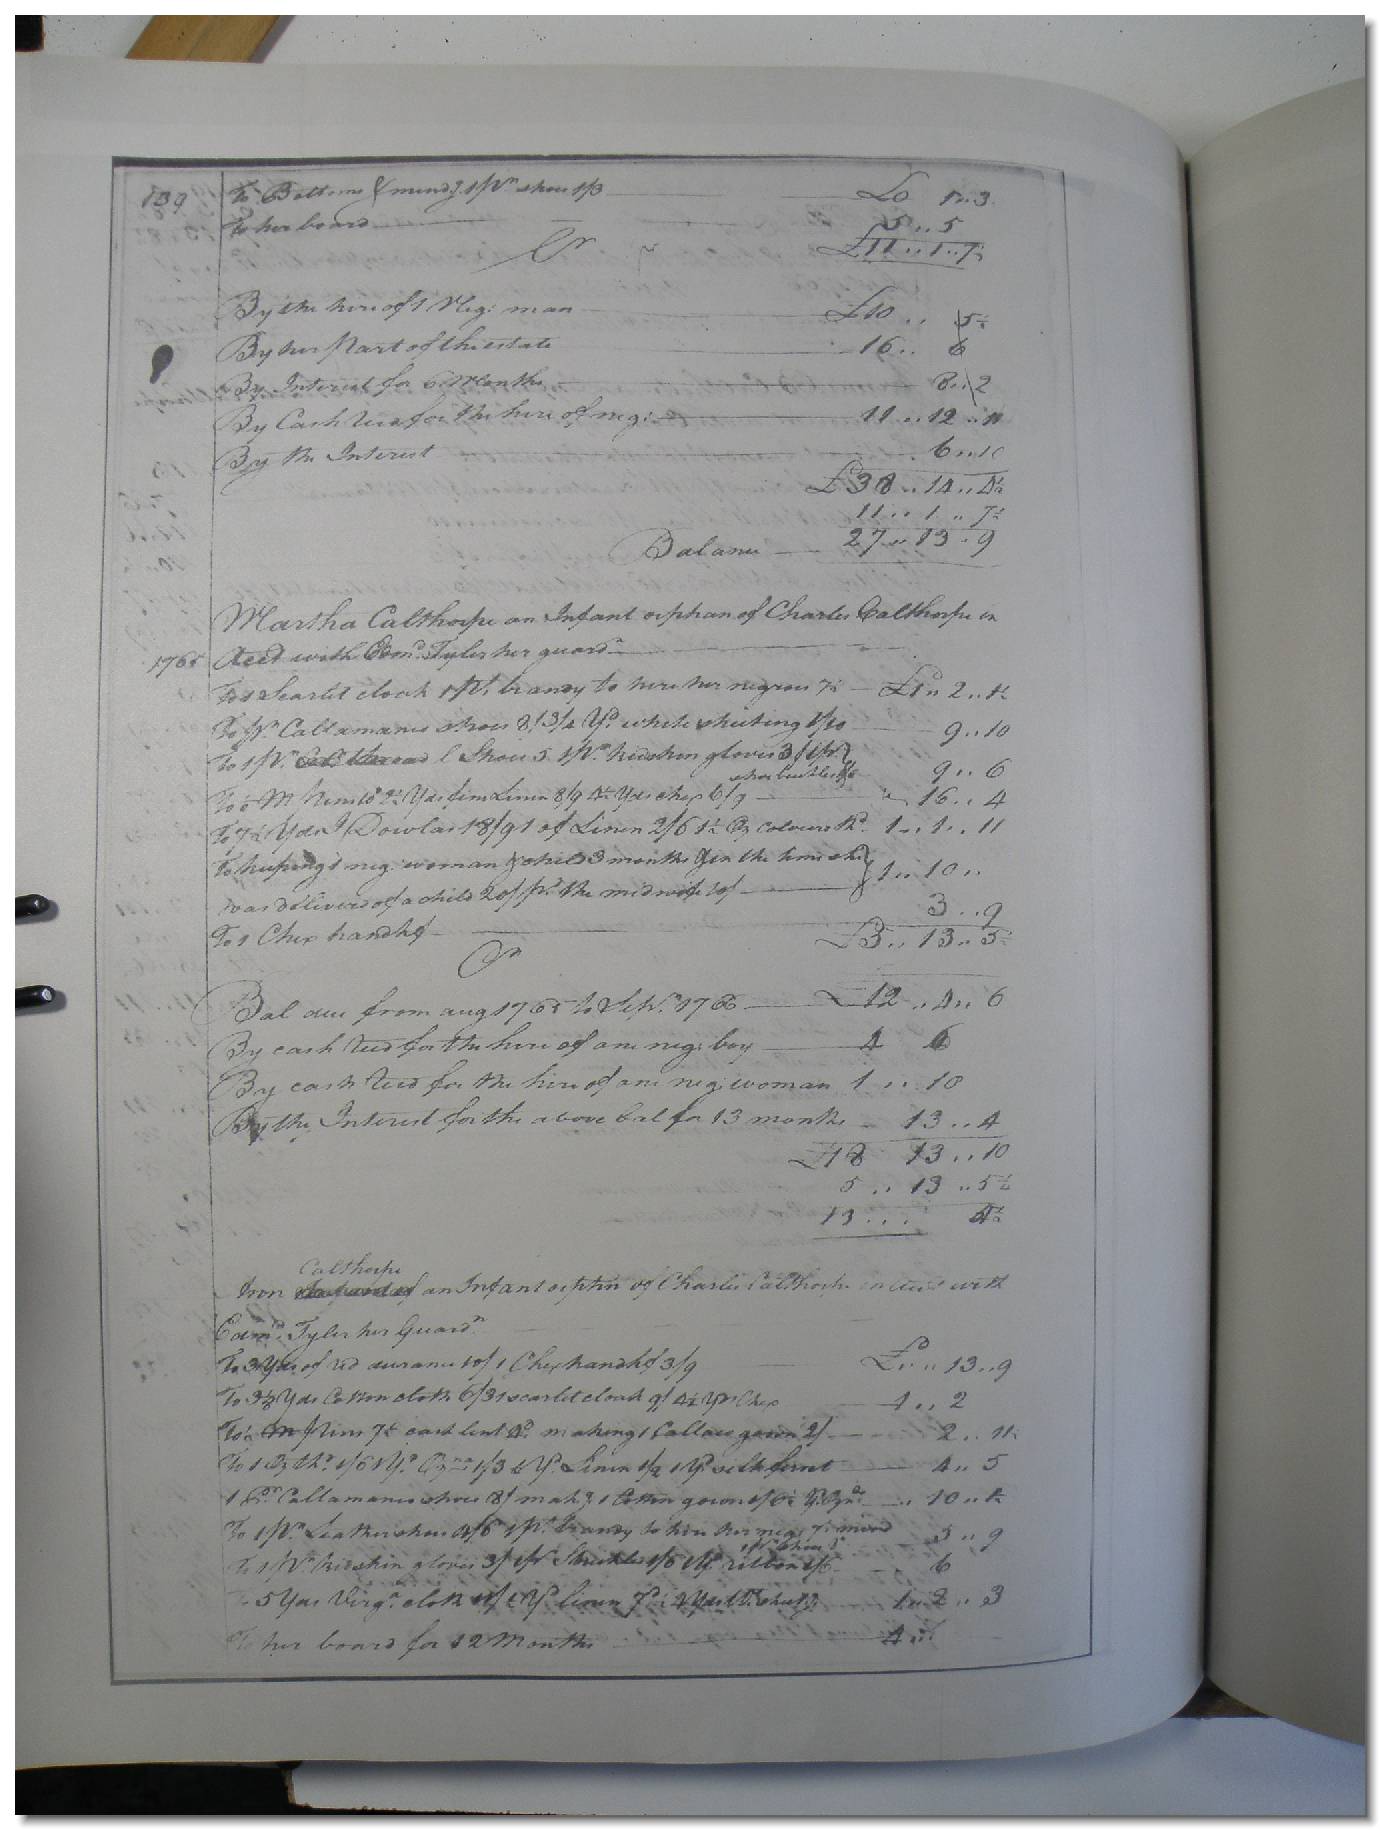 139 To Bottoms & mendg. 1 Pr. shoes 1/3 £0 1..3
To her board 5..5
Cr £11..1..7½
By the hire of 1 Neg: man £10..
By her Part of the estate 16.. 6
By Interest for 6 Months 8..2
By Cash Recd for the hire of neg: 11..12..
By the Interest 6..10
£38..14..4½
11..1..7½
Balance 27..13..9
Martha Calthorpe an Infant orphan of Charles Calthorpe in
1765 Acct with Edmd. Tyler her guardn.
To 1 Scarlet cloak 1 Pt. brandy to hire her negroes 7½ 2..1½
To Pr. Callamanco shoes 8/ 3/4 Yd. white sheeting 1/10 9..10
To 1 Pr. Shoes 5. 1 Pr. kidskin gloves 3/ 1 Pr.
shoe buckles 9..6
Yds fine Linen 8/9 4½ Yds chex 6/9 16..4
To 7½ Yds Dowlas 18/9 1 of Linen 2/6 1½ Oz coloured thd. 1..1..11
To keeping 1 neg: woman & child 3 months & in the time she
was delivered of a child 20/ pd. the midwife 10/ 1..10..
To 1 Chex handkf 3..9
13..5½
Cr
Bal due from aug 1765 to Sepr. 1766 £12..4..6
By cash Recd for the hire of one neg: boy 4 6
By cash Recd for the hire of one neg: woman 1..10
By the Interest for the above bal for 13 months 13..4
£18 13..10
5..13..5½
13... 4½
Calthorpe
an Infant orphn of Charles Calthorpe in acct with
Edmd. Tyler her Guardn.
To 3 Yds of red durance 10/ 1 Chex handkf 3/9 13..9
To 3½ Yds Cotton cloth 6/3 1 scarlet cloak 9/ 4½ Yds Chex 1..2
To ½ m Pins 7½ cash lent making 1 Callaco gown 2/ 2..11½
To 1 Oz thd. 1/6 1 Yd. 1/3 Yd. Linen 1/2 1 Yd silk ferret 4..5
1 Pr. Callamanco shoes 8/ makg 1 Cotton gown 10..
To 1 Pr. Leather shoes 4/6 1 Pt. brandy to hire her neg: 7½ 5..9
To 1 Pr. kidskin gloves 3/ ribbon 6
To 5 Yds Virga. cloth Yd. linen 1..2..3
To her board for 12 Months 4..